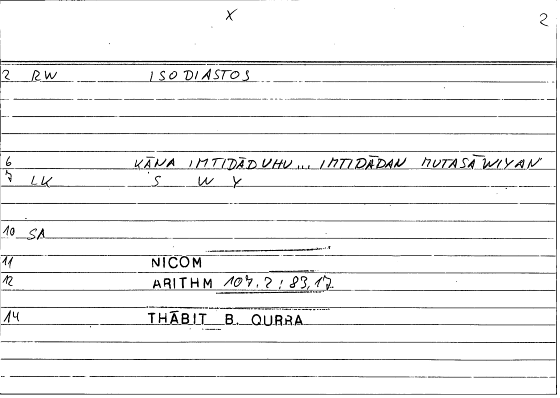 X 2
2 RW ISODIASTOS
6 KĀNA IMTIDĀDUHU... IMTIDĀDAN MUTASĀWIYAN
7 LK S W Y
10 SA
11 NICOM
12 ARITHM 107,2; 83,17
14 THĀBIT B. QURRA